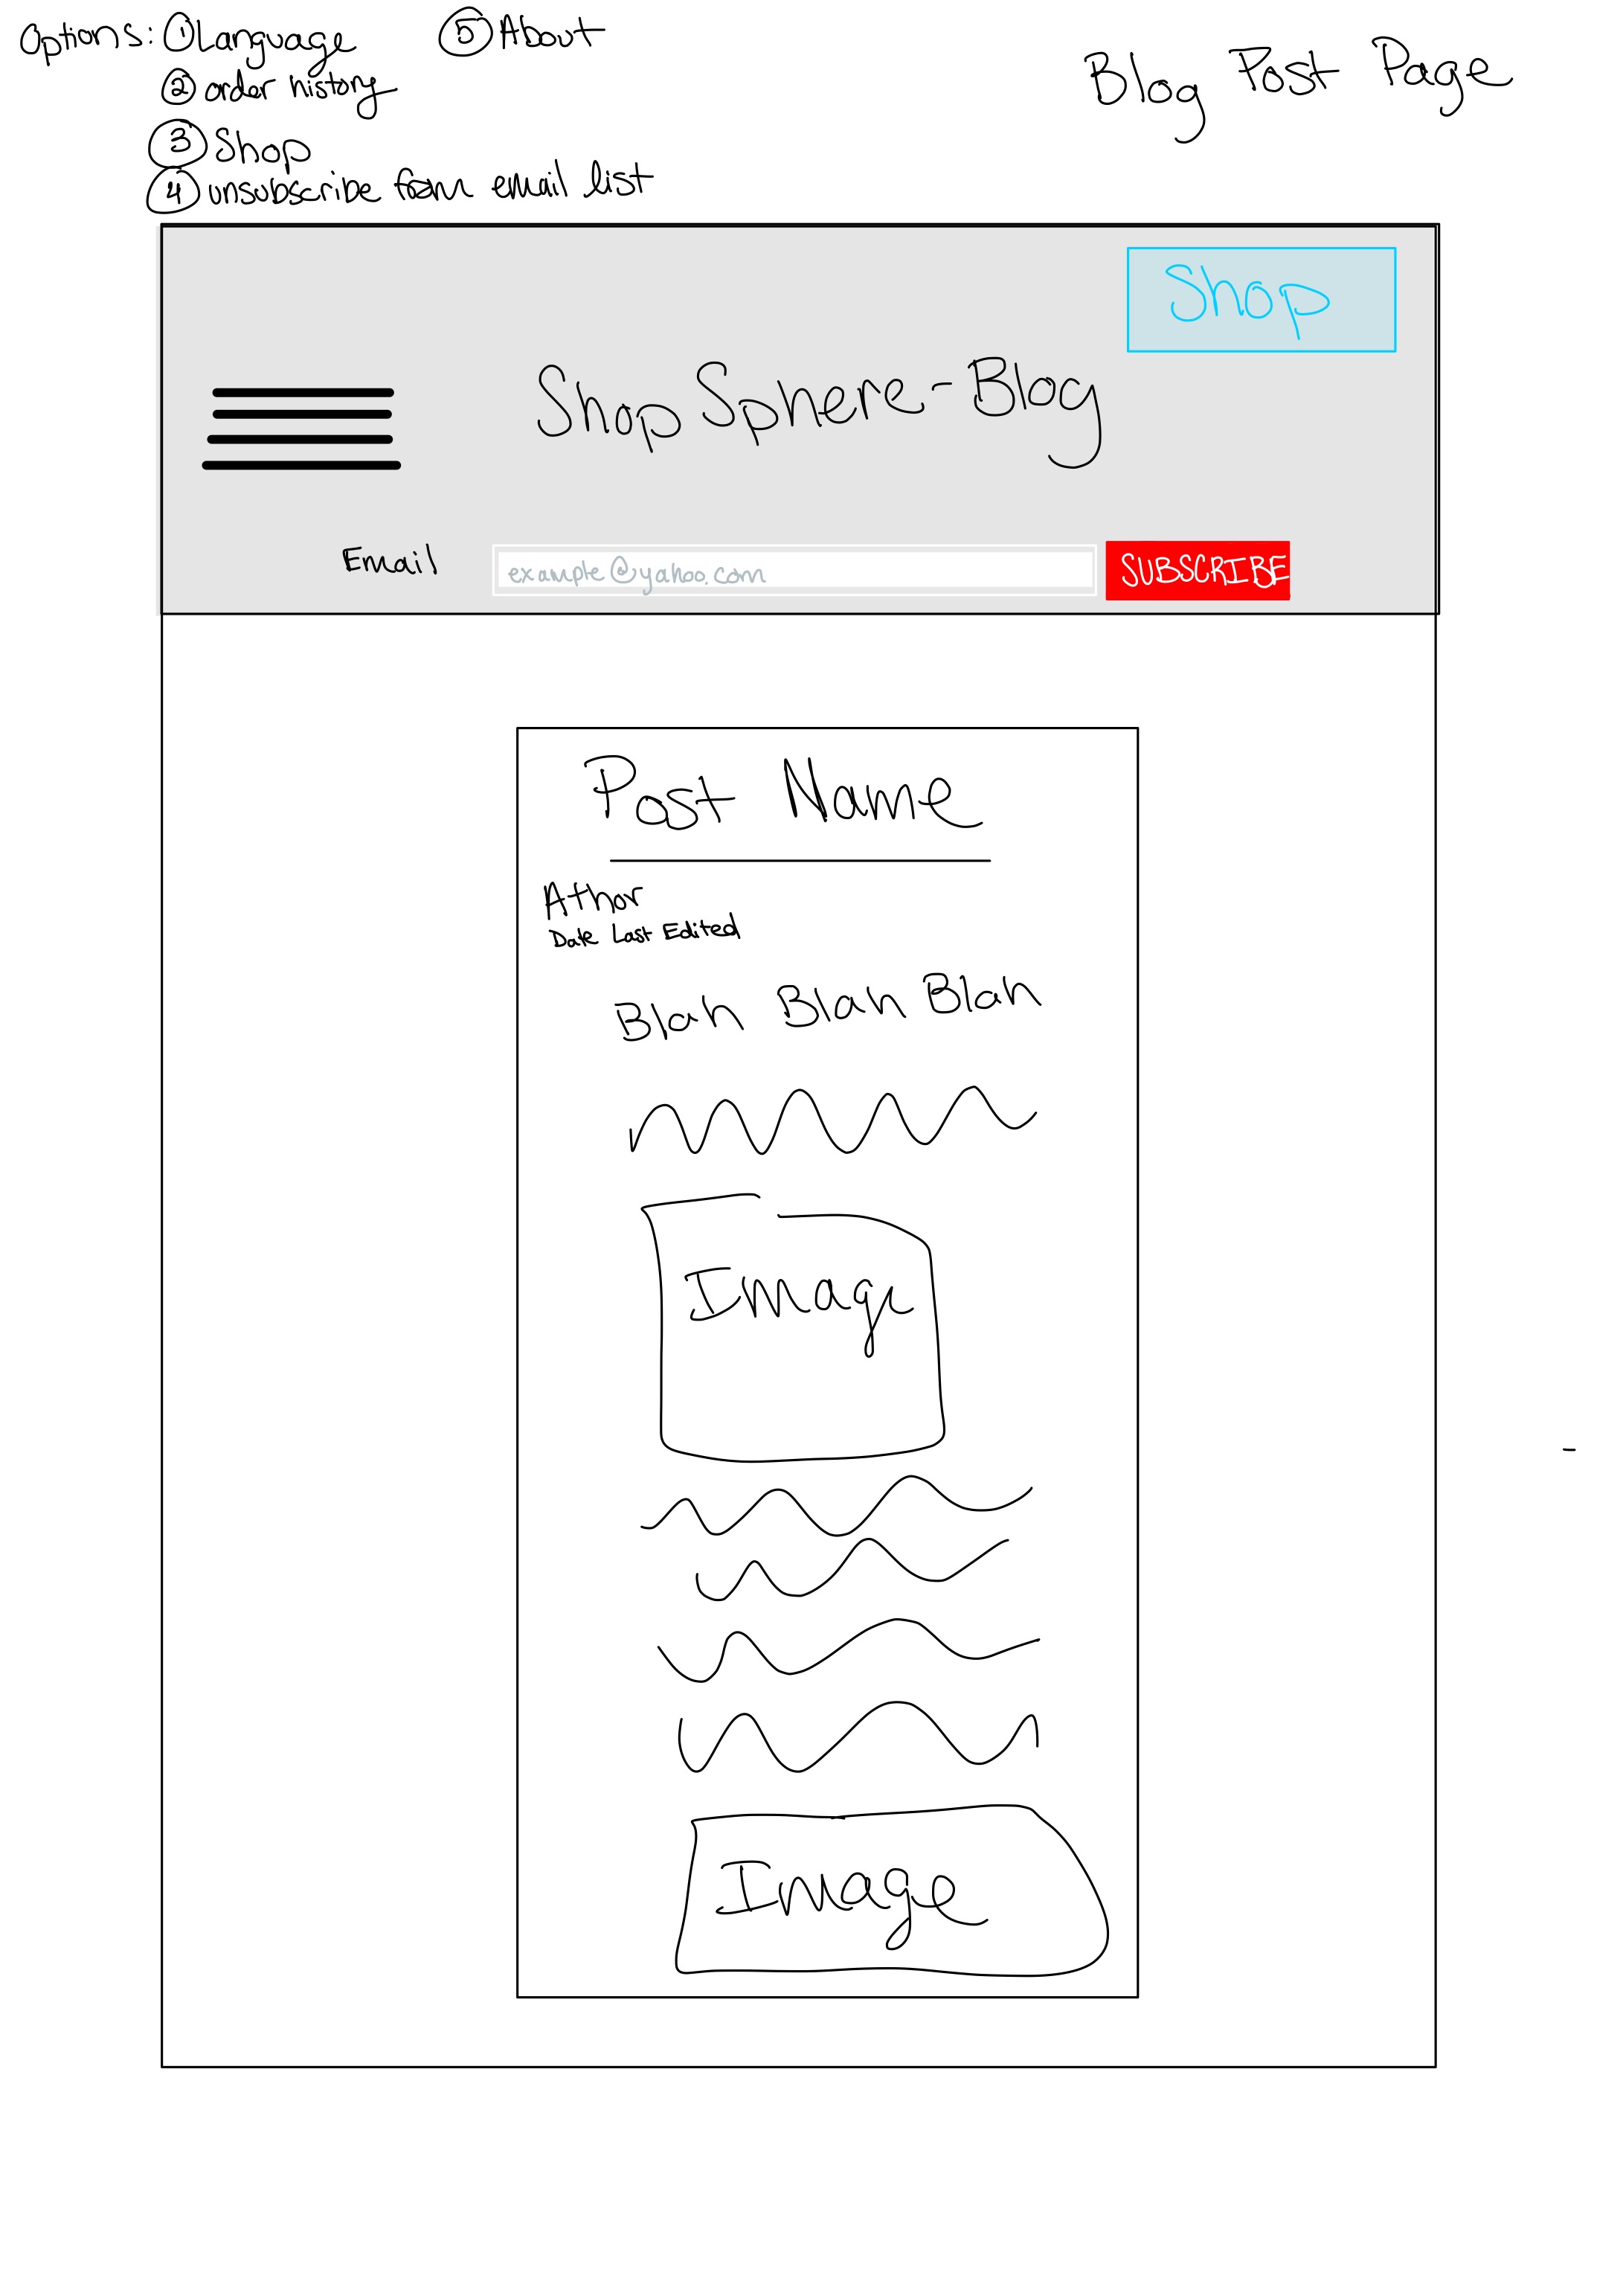 Options: ① Language ⑤ About
② order history
③ Shop
④ unsubscribe from email list
Blog Post Page
Shop
Shop Sphere-Blog
Email example@yahoo.com SUBSCRIBE
Post Name
Athor
Date Last Edited
Blah Blah Blah
Image
Image